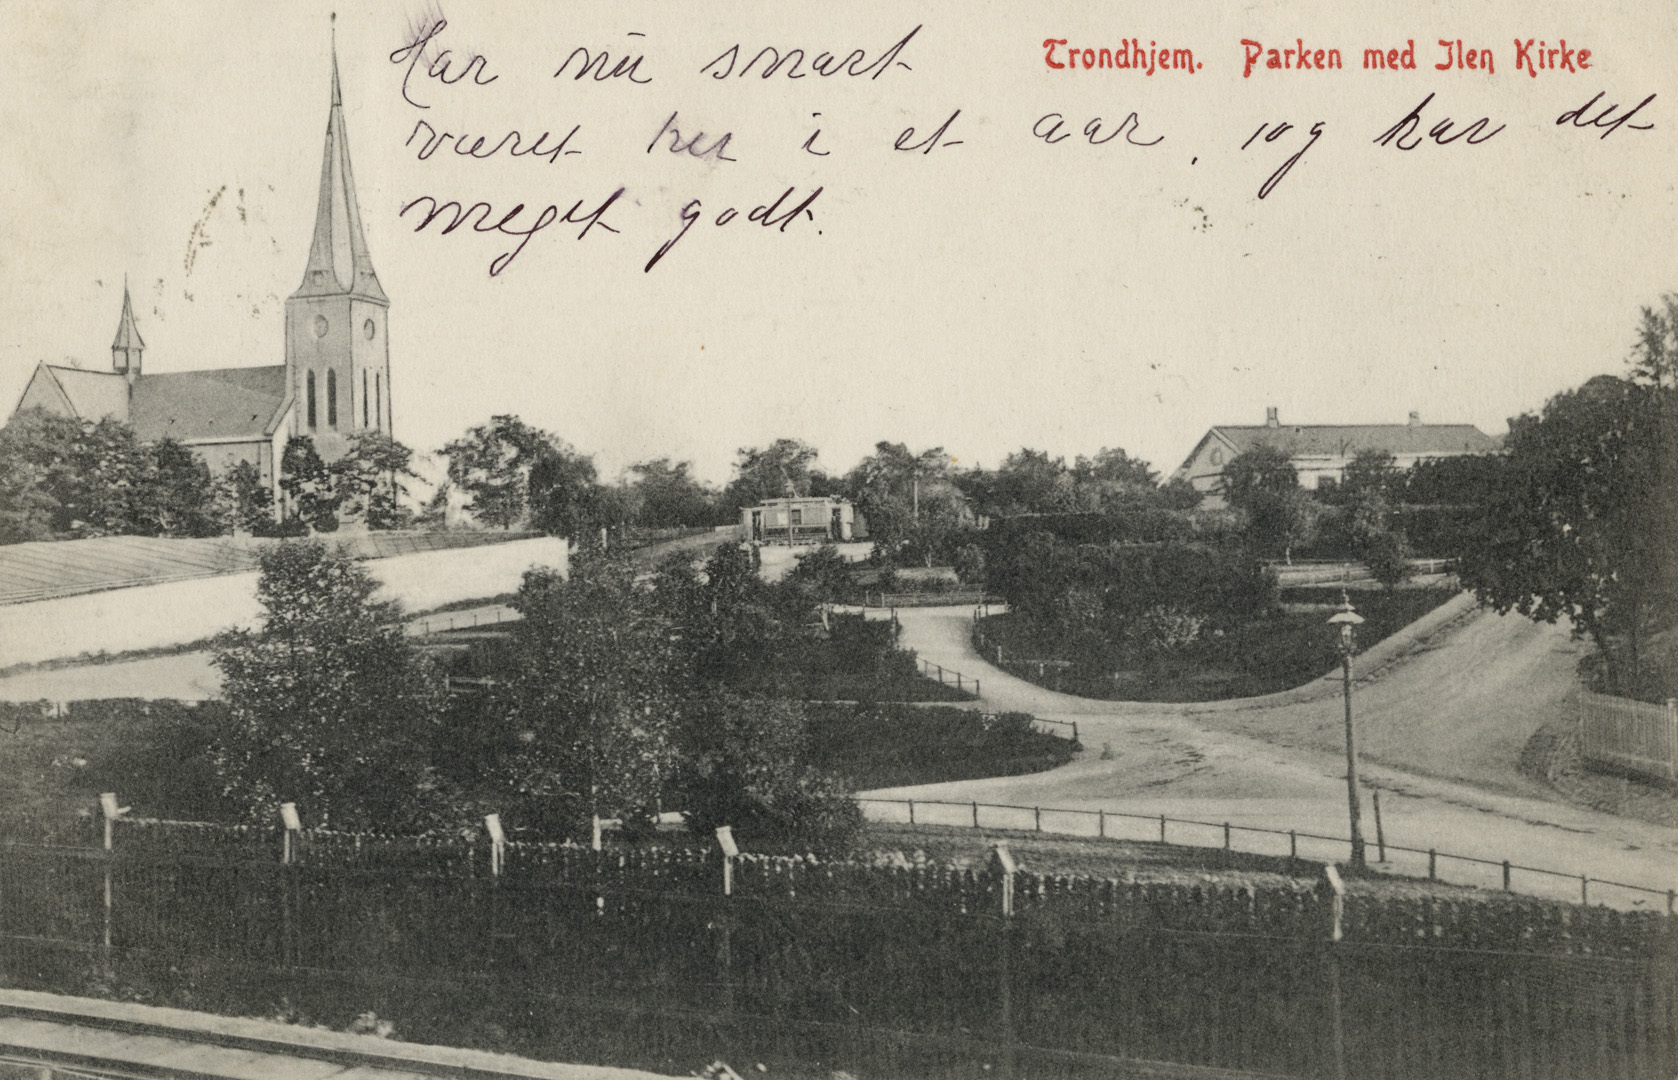 Trondhjem. Parken med Ilen Kirke
Har nu snart
været her i et aar, og har det
meget godt.